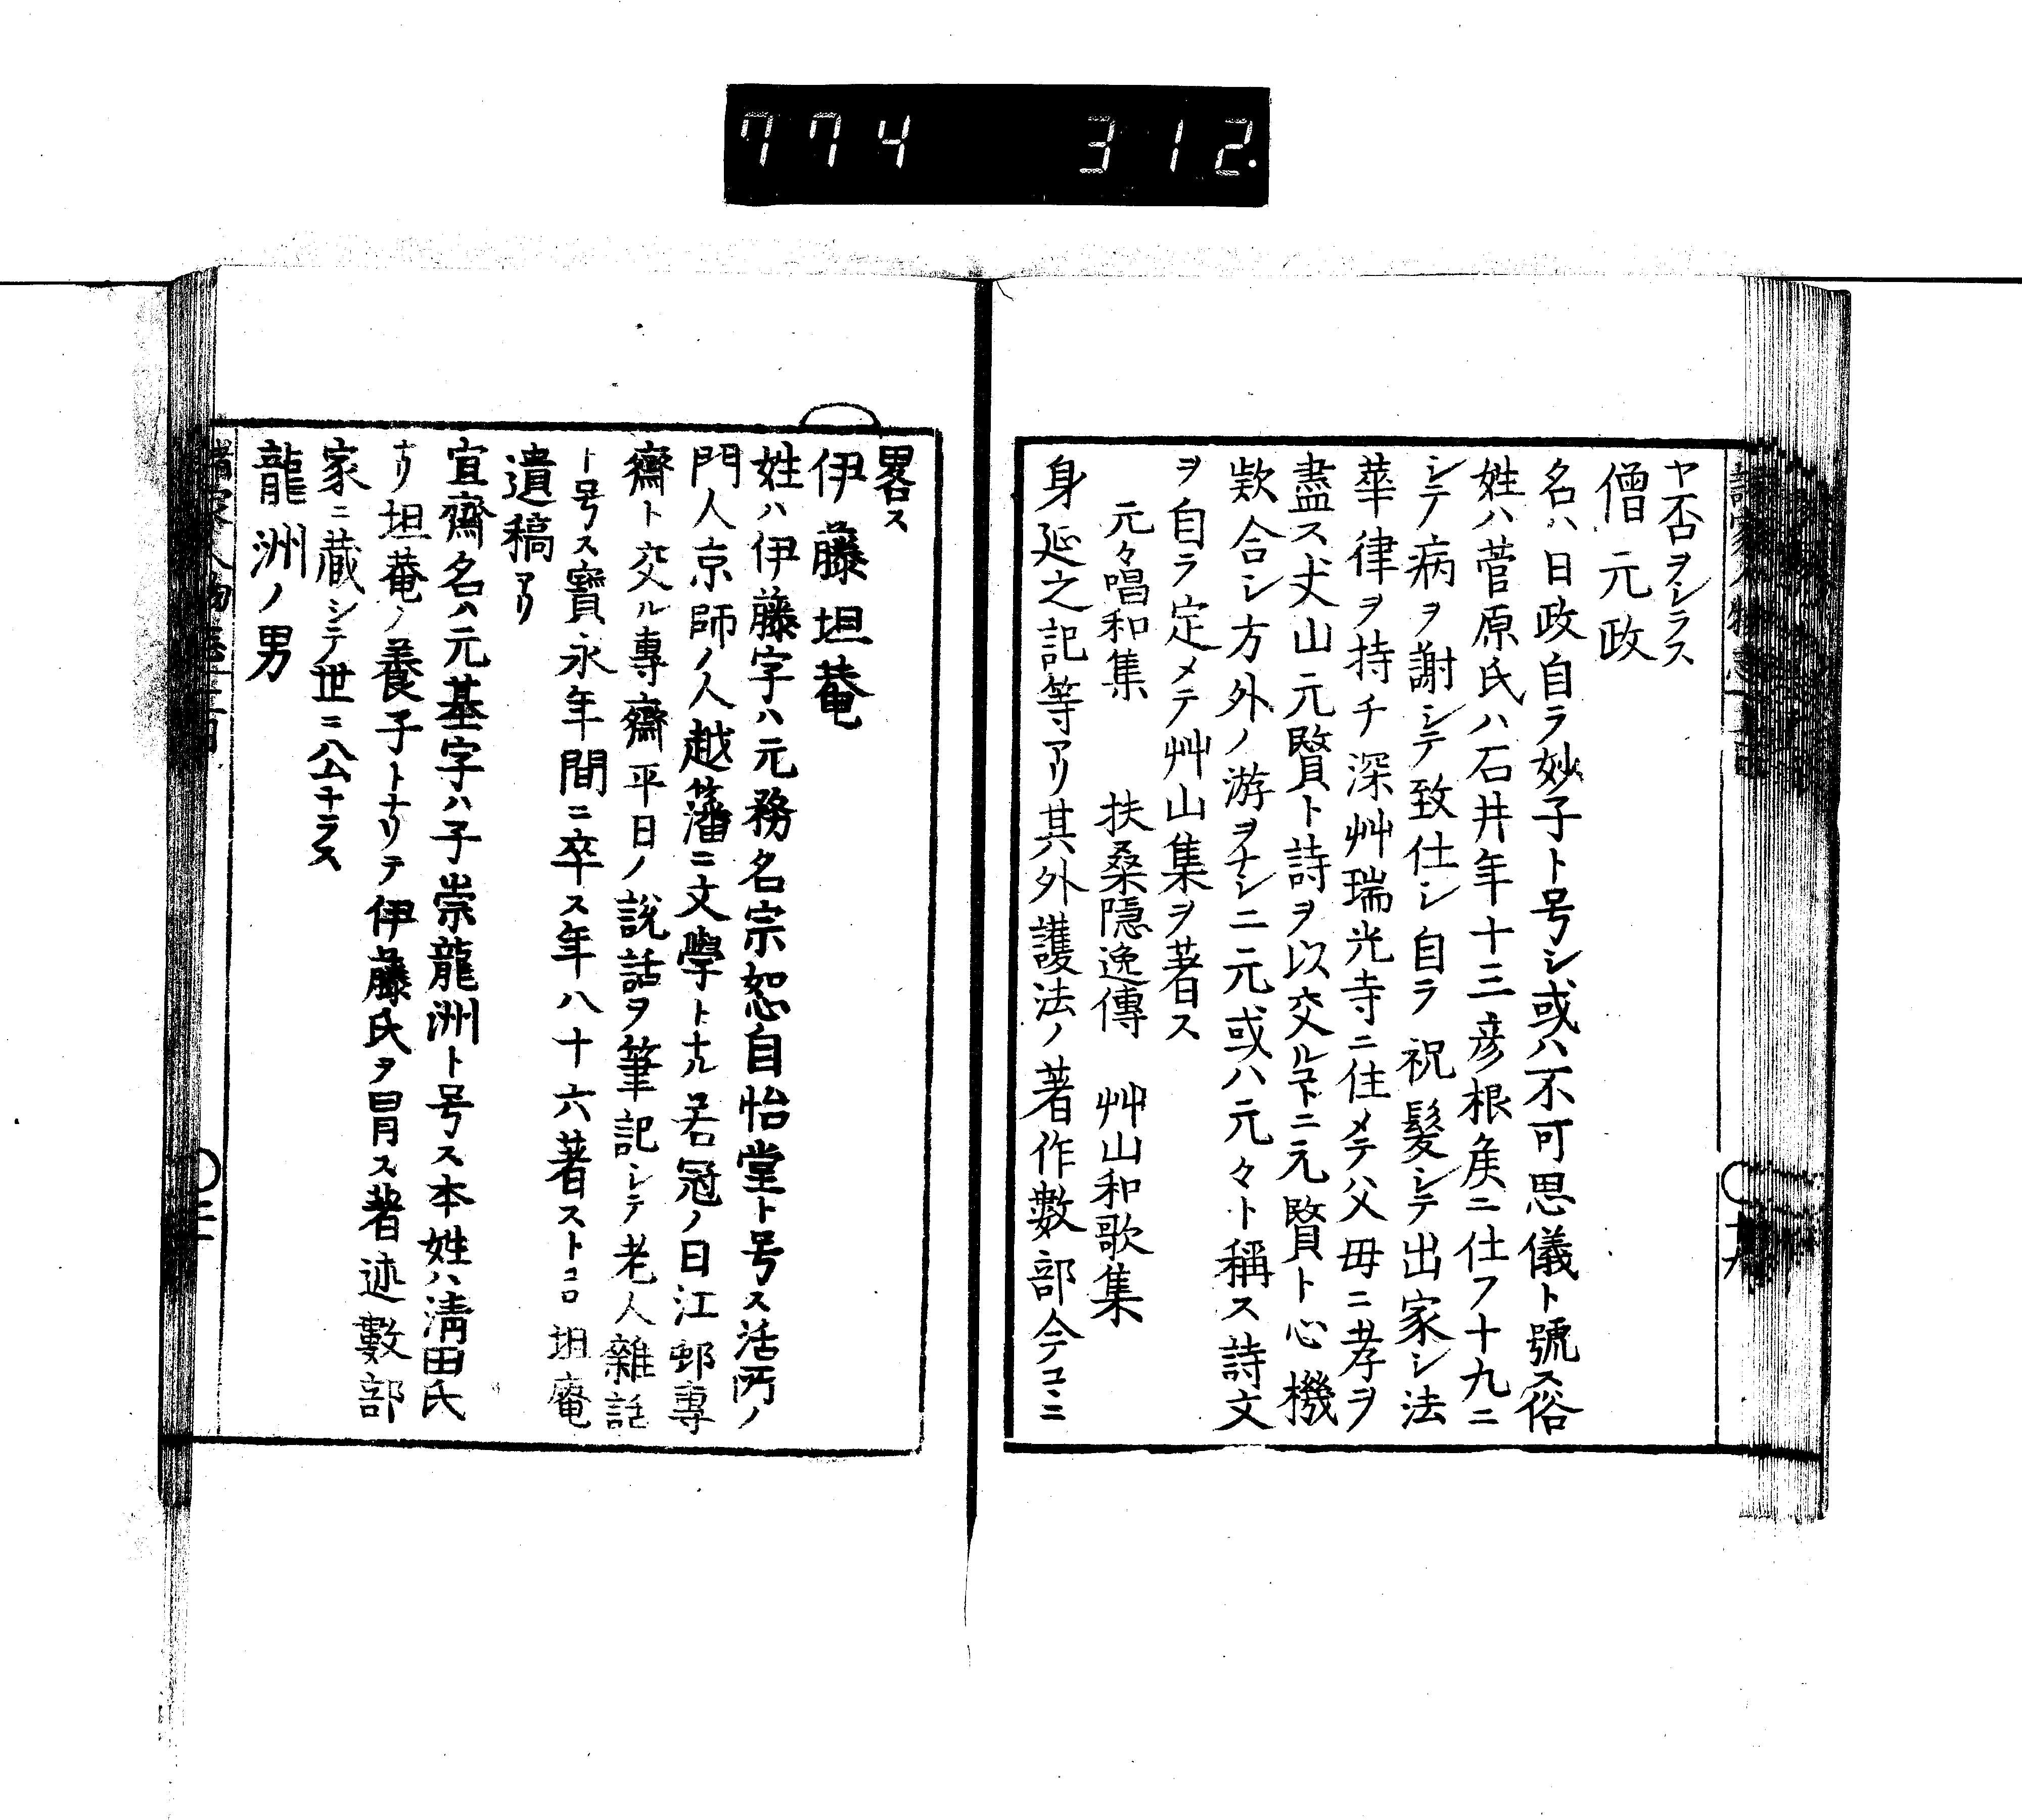 774 312.
ヤ否ヲシラス
僧元政
名ハ日政自ラ妙子ト号シ或ハ不可思儀ト號ス俗
姓ハ菅原氏ハ石井年十三彦根矦ニ仕フ十九ニ
シテ病ヲ謝シテ致仕シ自ラ祝髮シテ出家シ法
華律ヲ持チ深艸瑞光寺ニ住メテ父毋ニ孝ヲ
盡ス丈山元贇ト詩ヲ以交ルヿニ元贇ト心機
欵合シ方外ノ游ヲナシ二元或ハ元々ト稱ス詩文
ヲ自ラ定メテ艸山集ヲ著ス
元々唱和集 扶桑隱逸傳 艸山和歌集
身延之記等アリ其外護法ノ著作數部今コヽニ
畧ス
伊藤坦菴
姓ハ伊藤字ハ元務名宗恕自怡堂ト号ス活所ノ
門人京師ノ人越藩ニ文學トナル若冠ノ日江邨專
齋ト交ル專齋平日ノ說話ヲ筆記シテ老人雜話
ト号ス寶永年間ニ卒ス年八十六著ストコロ坦庵
遺稿アリ
宜齋名ハ元基字ハ子崇龍洲ト号ス本姓ハ淸田氏
ナリ坦菴ノ養子トナリテ伊藤氏ヲ冒ス著述數部
家ニ藏シテ世ニ公ナラス
龍洲ノ男